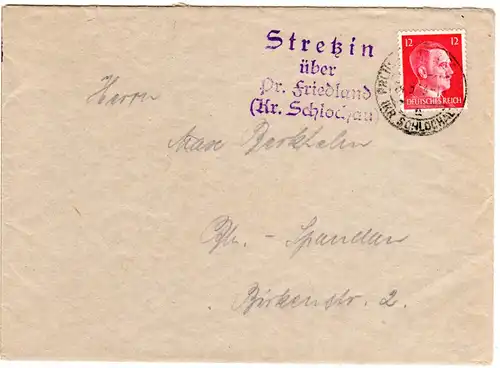 Stretzin
über
Pr. Friedland
(Kr. Schlochau)
12 12
DEUTSCHES REICH
(KR. SCHLOCHAU)
Herrn
Max
Bln. - Spandau
Birkenstr. 2.